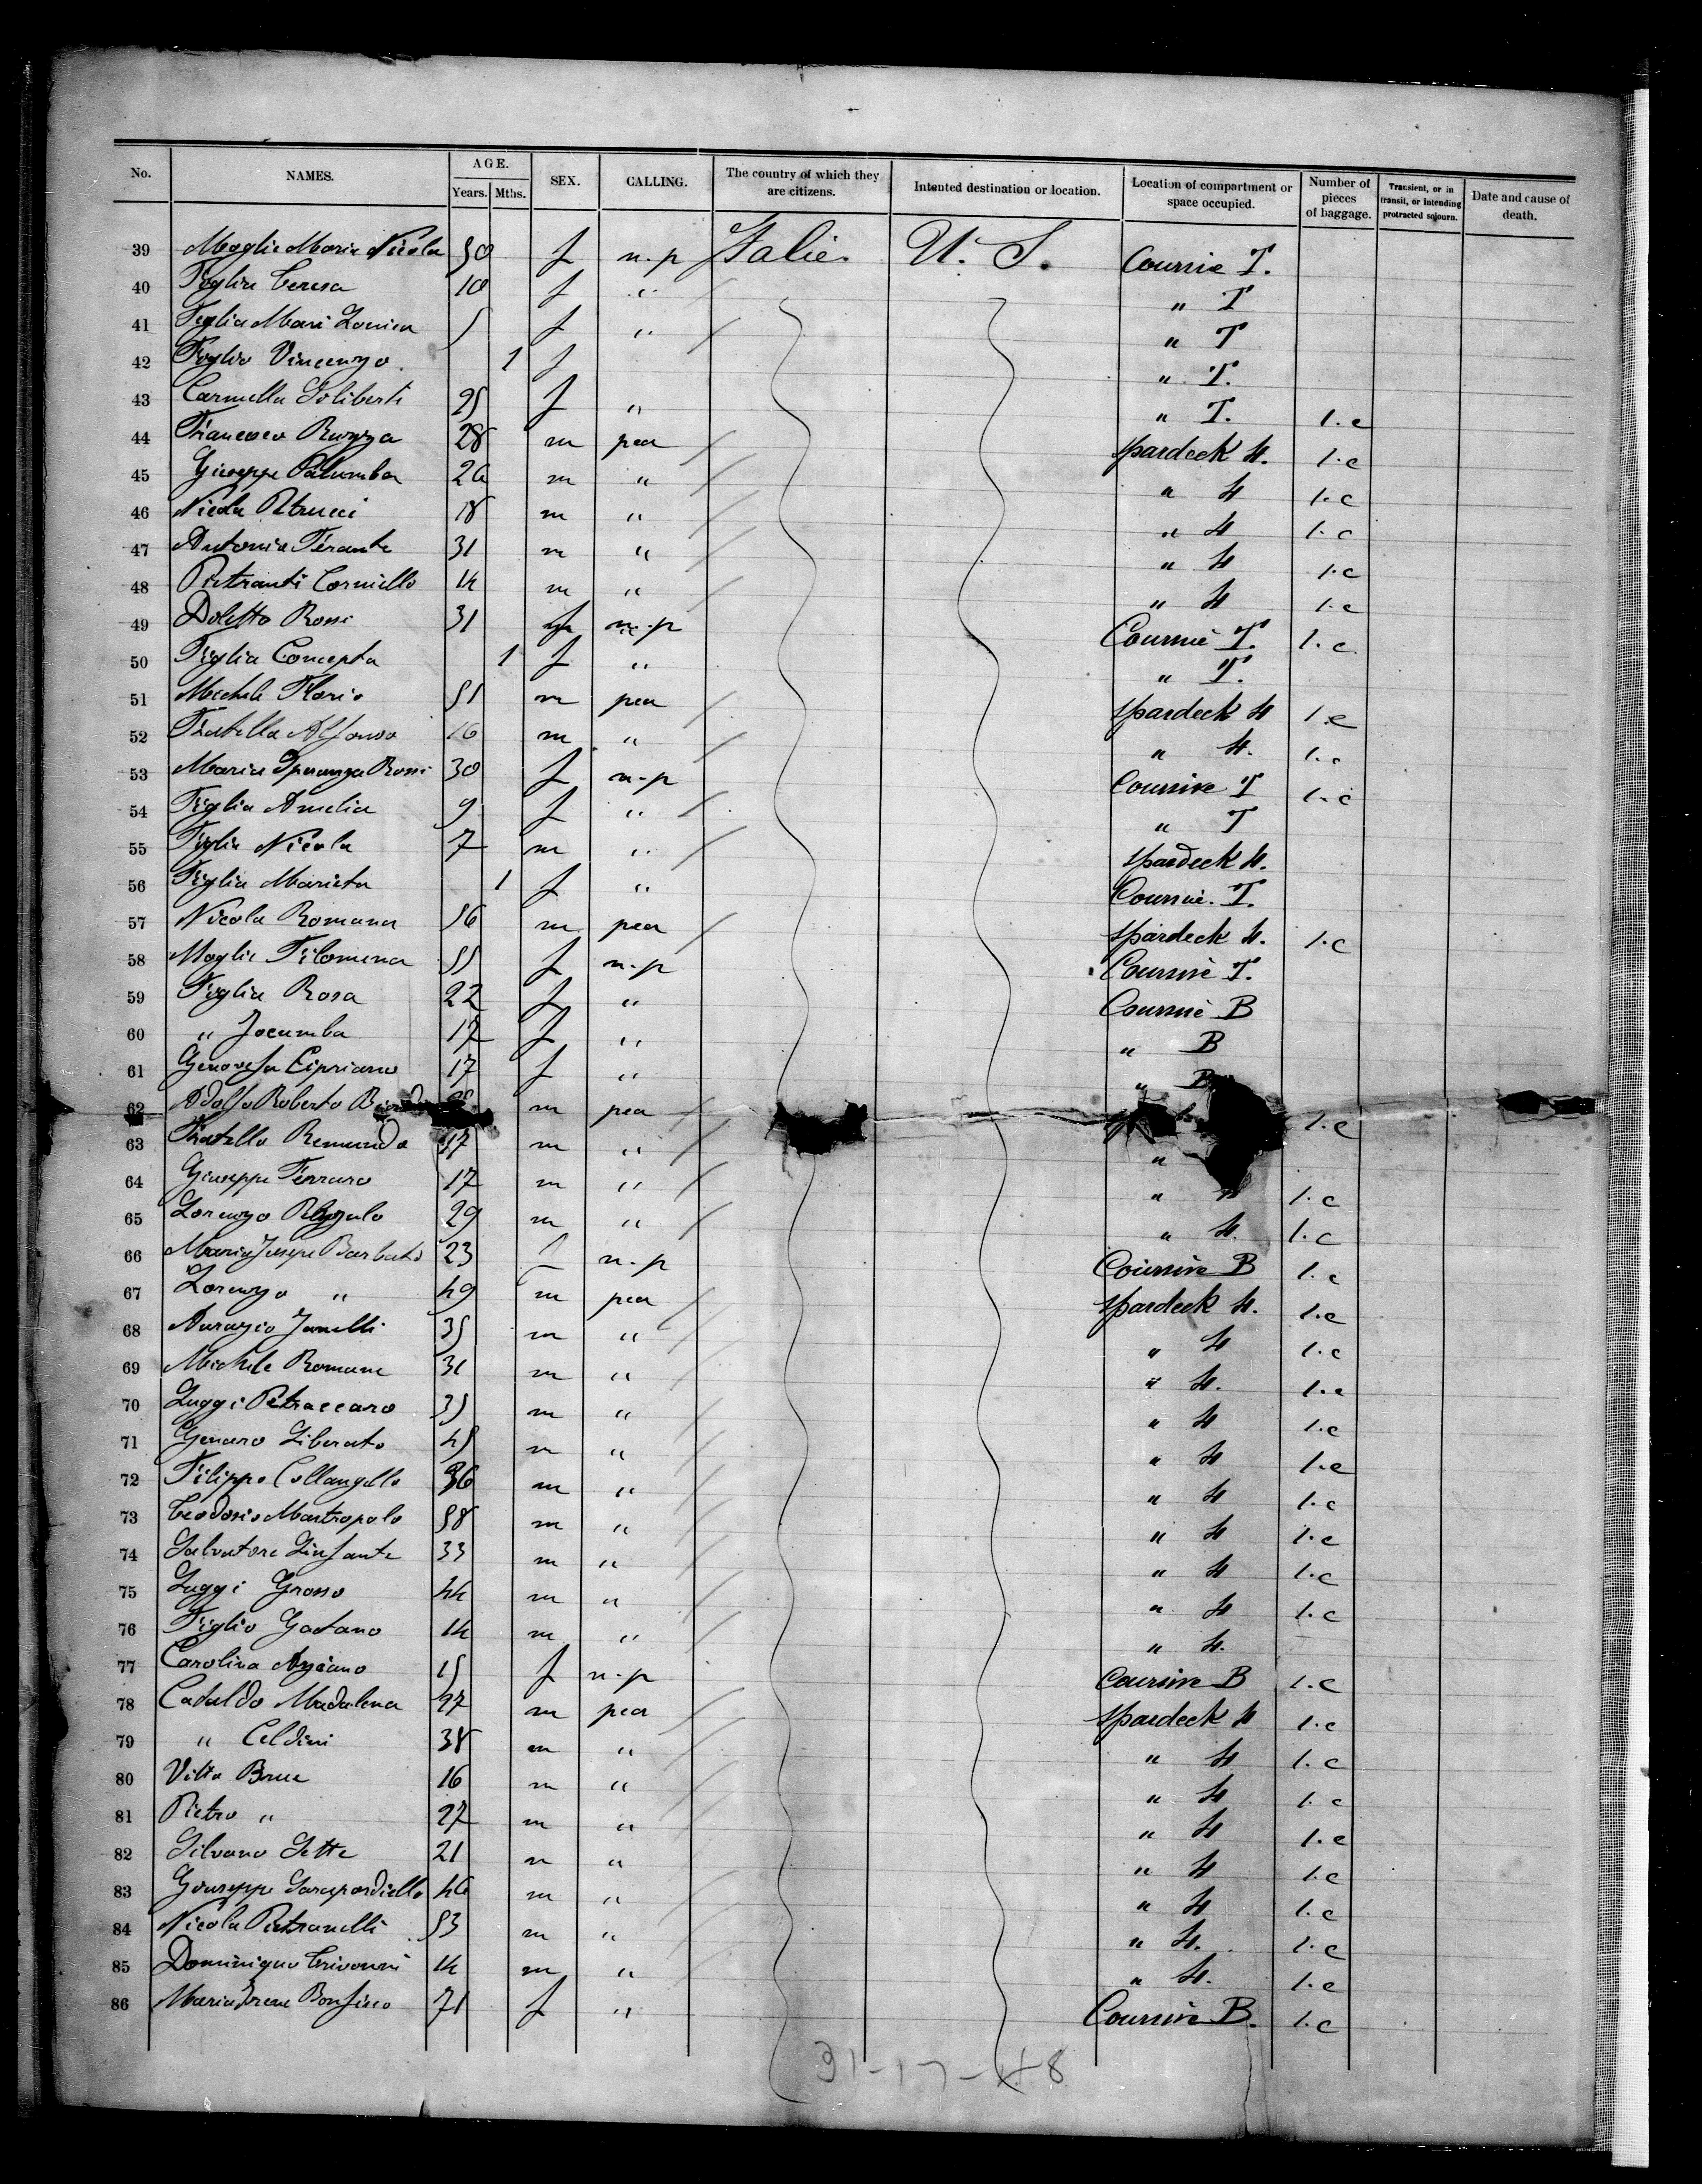 No. NAMES. AGE. Years. Mths. SEX. CALLING. The country of which they are citizens. Intented destination or location. Location of compartment or space occupied. Number of pieces of baggage. Transient, or in transit, or intending protracted sojourn. Date and cause of death.
39 Moglie Maria Nicola 30 f n.p Italie. U. S. Coursive T.
40 Figlia Teresa 10 f " " T
41 Figlia Mari 5 f " " T
42 Figlio Vincenzo. 1 f " T.
43 Carmella Soliberti 25 f " " T. 1.c
44 Francesco 28 m pea Spardeck 4. 1.c
45 Giuseppe Palumba 26 m " " 4 1.c
46 Nicola Petrucci 18 m " " 4 1.c
47 Antonio Ferante 31 m " " 4 1.c
48 Pietranti Corniello 14 m " " 4 1.c
49 Doletto Rossi 31 f n.p Coursive T. 1.c
50 Figlia Concepta 1 f " " T.
51 Michele Florio 51 m pea Spardeck 4 1.c
52 Fratello Alfonso 16 m " " 4. 1.c
53 Maria Speranza Rossi 30 f n.p Coursive T 1.c
54 Figlia Amelia 9 f " " T
55 Figlio Nicola 7 m " Spardeck 4.
56 Figlia Marieta 1 f " Coursive. T.
57 Nicola Romana 56 m pea Spardeck 4. 1.c
58 Moglie Filomena 55 f n.p Coursive T.
59 Figlia Rosa 22 f " Coursive B
60 " Jocumba 17 f " " B
61 Genovefa Cipriano 17 f " " B
62 Adolfo Roberto m pea 1.c
63 Fratello Remundo 17 m " "
64 Giuseppe Ferraro 17 m " " 1.c
65 Lorenzo 29 m " " 4. 1.c
66 Maria Josepe Barbato 23 f n.p Coursive B 1.c
67 Lorenzo " 49 m pea Spardeck 4. 1.c
68 Nunzio Janelli 35 m " " 4 1.c
69 Michele Romane 31 m " " 4. 1.c
70 Luggi Petraccaro 35 m " " 4 1.c
71 Genaro Liberato 45 m " " 4 1.c
72 Filippo Collangello 36 m " " 4 1.c
73 Teodosio Mastropolo 58 m " " 4 1.c
74 Salvatore Linfante 33 m " " 4 1.c
75 Luggi Grosso 44 m " " 4 1.c
76 Figlio Gaetano 14 m " " 4.
77 Carolina 15 f n.p Coursive B 1.c
78 Cataldo Madalena 47 m pea Spardeck 4 1.c
79 " Celdini 38 m " " 4 1.c
80 Vitta Brue 16 m " " 4 1.c
81 Pietro " 27 m " " 4 1.c
82 Silvano Sette 21 m " " 4 1.c
83 Giuseppe 46 m " " 4 1.c
84 Nicola Pietranelli 53 m " " 4. 1.c
85 Dominiquo 14 m " " 4. 1.c
86 Maria Irene Bonfino 71 f " Coursive B. 1.c
31-17-48